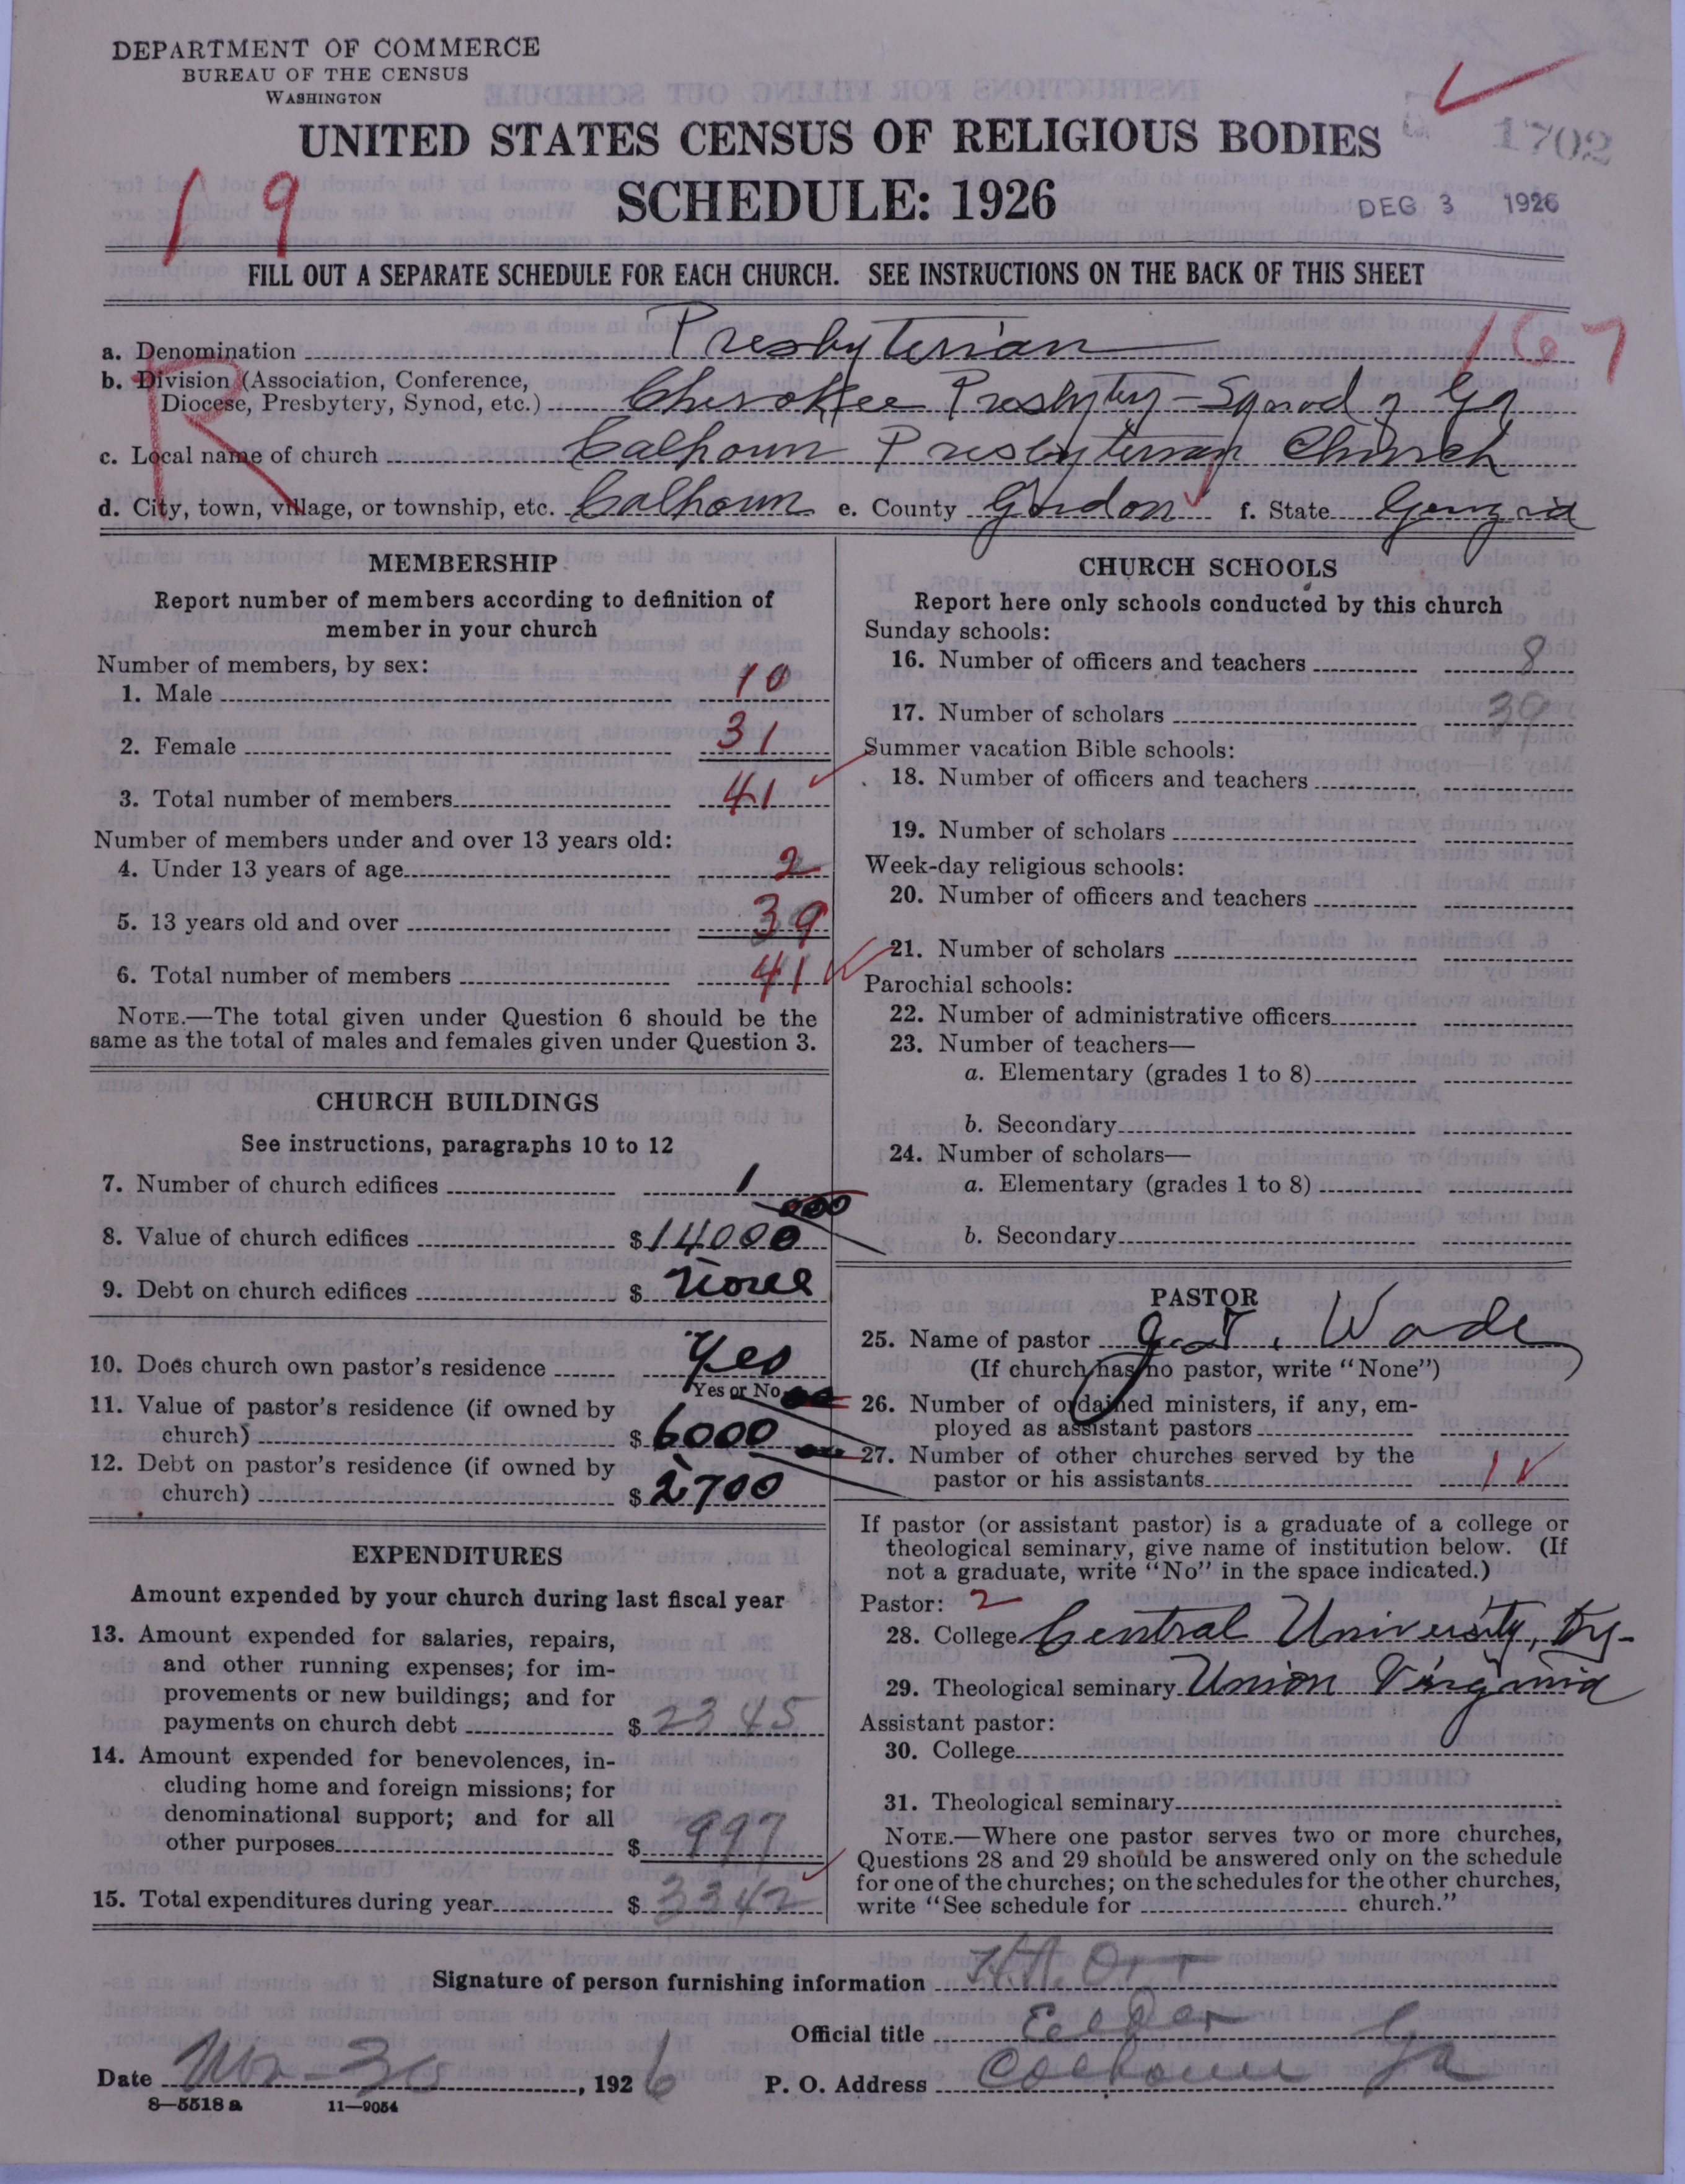 DEPARTMENT OF COMMERCE
BUREAU OF THE CENSUS
WASHINGTON
UNITED STATES CENSUS OF RELIGIOUS BODIES
1702
19
SCHEDULE: 1926
DEC 3 1926
FILL OUT A SEPARATE SCHEDULE FOR EACH CHURCH. SEE INSTRUCTIONS ON THE BACK OF THIS SHEET
167
R
a. Denomination Presbyterian
b. Division (Association, Conference,
Diocese, Presbytery, Synod, etc.) Cherokee Presbytery - Synod of Ga
c. Local name of church Calhoun Presbyterian Church
d. City, town, village, or township, etc. Calhoun e. County Gordon f. State Georgia
MEMBERSHIP
Report number of members according to definition of
member in your church
Number of members, by sex:
1. Male 10
2. Female 31
3. Total number of members 41
Number of members under and over 13 years old:
4. Under 13 years of age 2
5. 13 years old and over 39
6. Total number of members 41
NOTE.—The total given under Question 6 should be the
same as the total of males and females given under Question 3.
CHURCH BUILDINGS
See instructions, paragraphs 10 to 12
7. Number of church edifices 1
8. Value of church edifices $14000
9. Debt on church edifices $ none
10. Does church own pastor's residence Yes
Yes or No
11. Value of pastor's residence (if owned by
church) $6000
12. Debt on pastor's residence (if owned by
church) $2700
EXPENDITURES
Amount expended by your church during last fiscal year
13. Amount expended for salaries, repairs,
and other running expenses; for im-
provements or new buildings; and for
payments on church debt $ 2345
14. Amount expended for benevolences, in-
cluding home and foreign missions; for
denominational support; and for all
other purposes $ 997
15. Total expenditures during year $ 3342
CHURCH SCHOOLS
Report here only schools conducted by this church
Sunday schools:
16. Number of officers and teachers 8
17. Number of scholars 39
Summer vacation Bible schools:
18. Number of officers and teachers
19. Number of scholars
Week-day religious schools:
20. Number of officers and teachers
21. Number of scholars
Parochial schools:
22. Number of administrative officers
23. Number of teachers—
a. Elementary (grades 1 to 8)
b. Secondary
24. Number of scholars—
a. Elementary (grades 1 to 8)
b. Secondary
PASTOR
25. Name of pastor J. T. Wade
(If church has no pastor, write "None")
26. Number of ordained ministers, if any, em-
ployed as assistant pastors
27. Number of other churches served by the
pastor or his assistants 1
If pastor (or assistant pastor) is a graduate of a college or
theological seminary, give name of institution below. (If
not a graduate, write "No" in the space indicated.)
Pastor: 2
28. College Central University, Ky-
29. Theological seminary Union Virginia
Assistant pastor:
30. College
31. Theological seminary
NOTE.—Where one pastor serves two or more churches,
Questions 28 and 29 should be answered only on the schedule
for one of the churches; on the schedules for the other churches,
write "See schedule for church."
Signature of person furnishing information Orr
Official title Elder
Date Nov - 30, 1926 P. O. Address Calhoun Ga
8—5518 a 11—9054